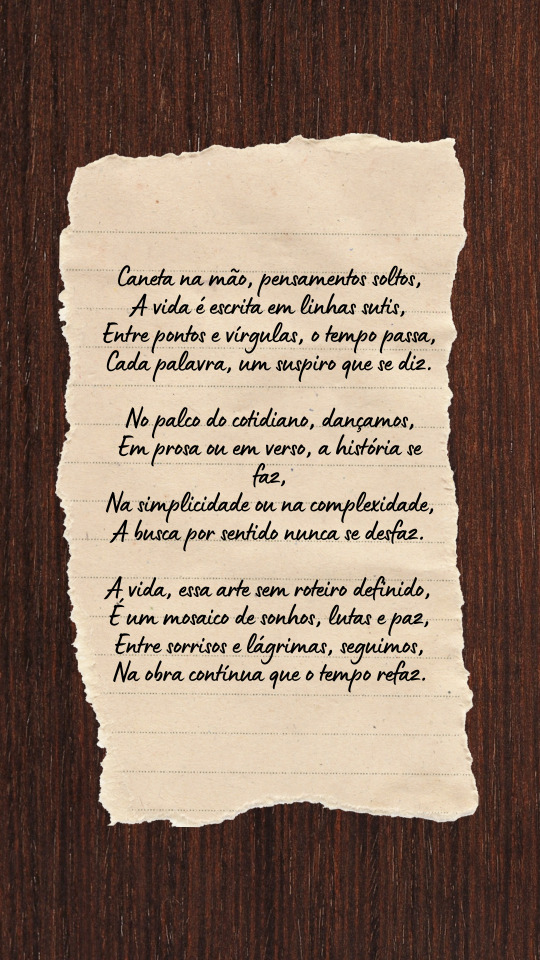 Caneta na mão, pensamentos soltos,
A vida é escrita em linhas sutis,
Entre pontos e vírgulas, o tempo passa,
Cada palavra, um suspiro que se diz.
No palco do cotidiano, dançamos,
Em prosa ou em verso, a história se
faz,
Na simplicidade ou na complexidade,
A busca por sentido nunca se desfaz.
A vida, essa arte sem roteiro definido,
É um mosaico de sonhos, lutas e paz,
Entre sorrisos e lágrimas, seguimos,
Na obra contínua que o tempo refaz.